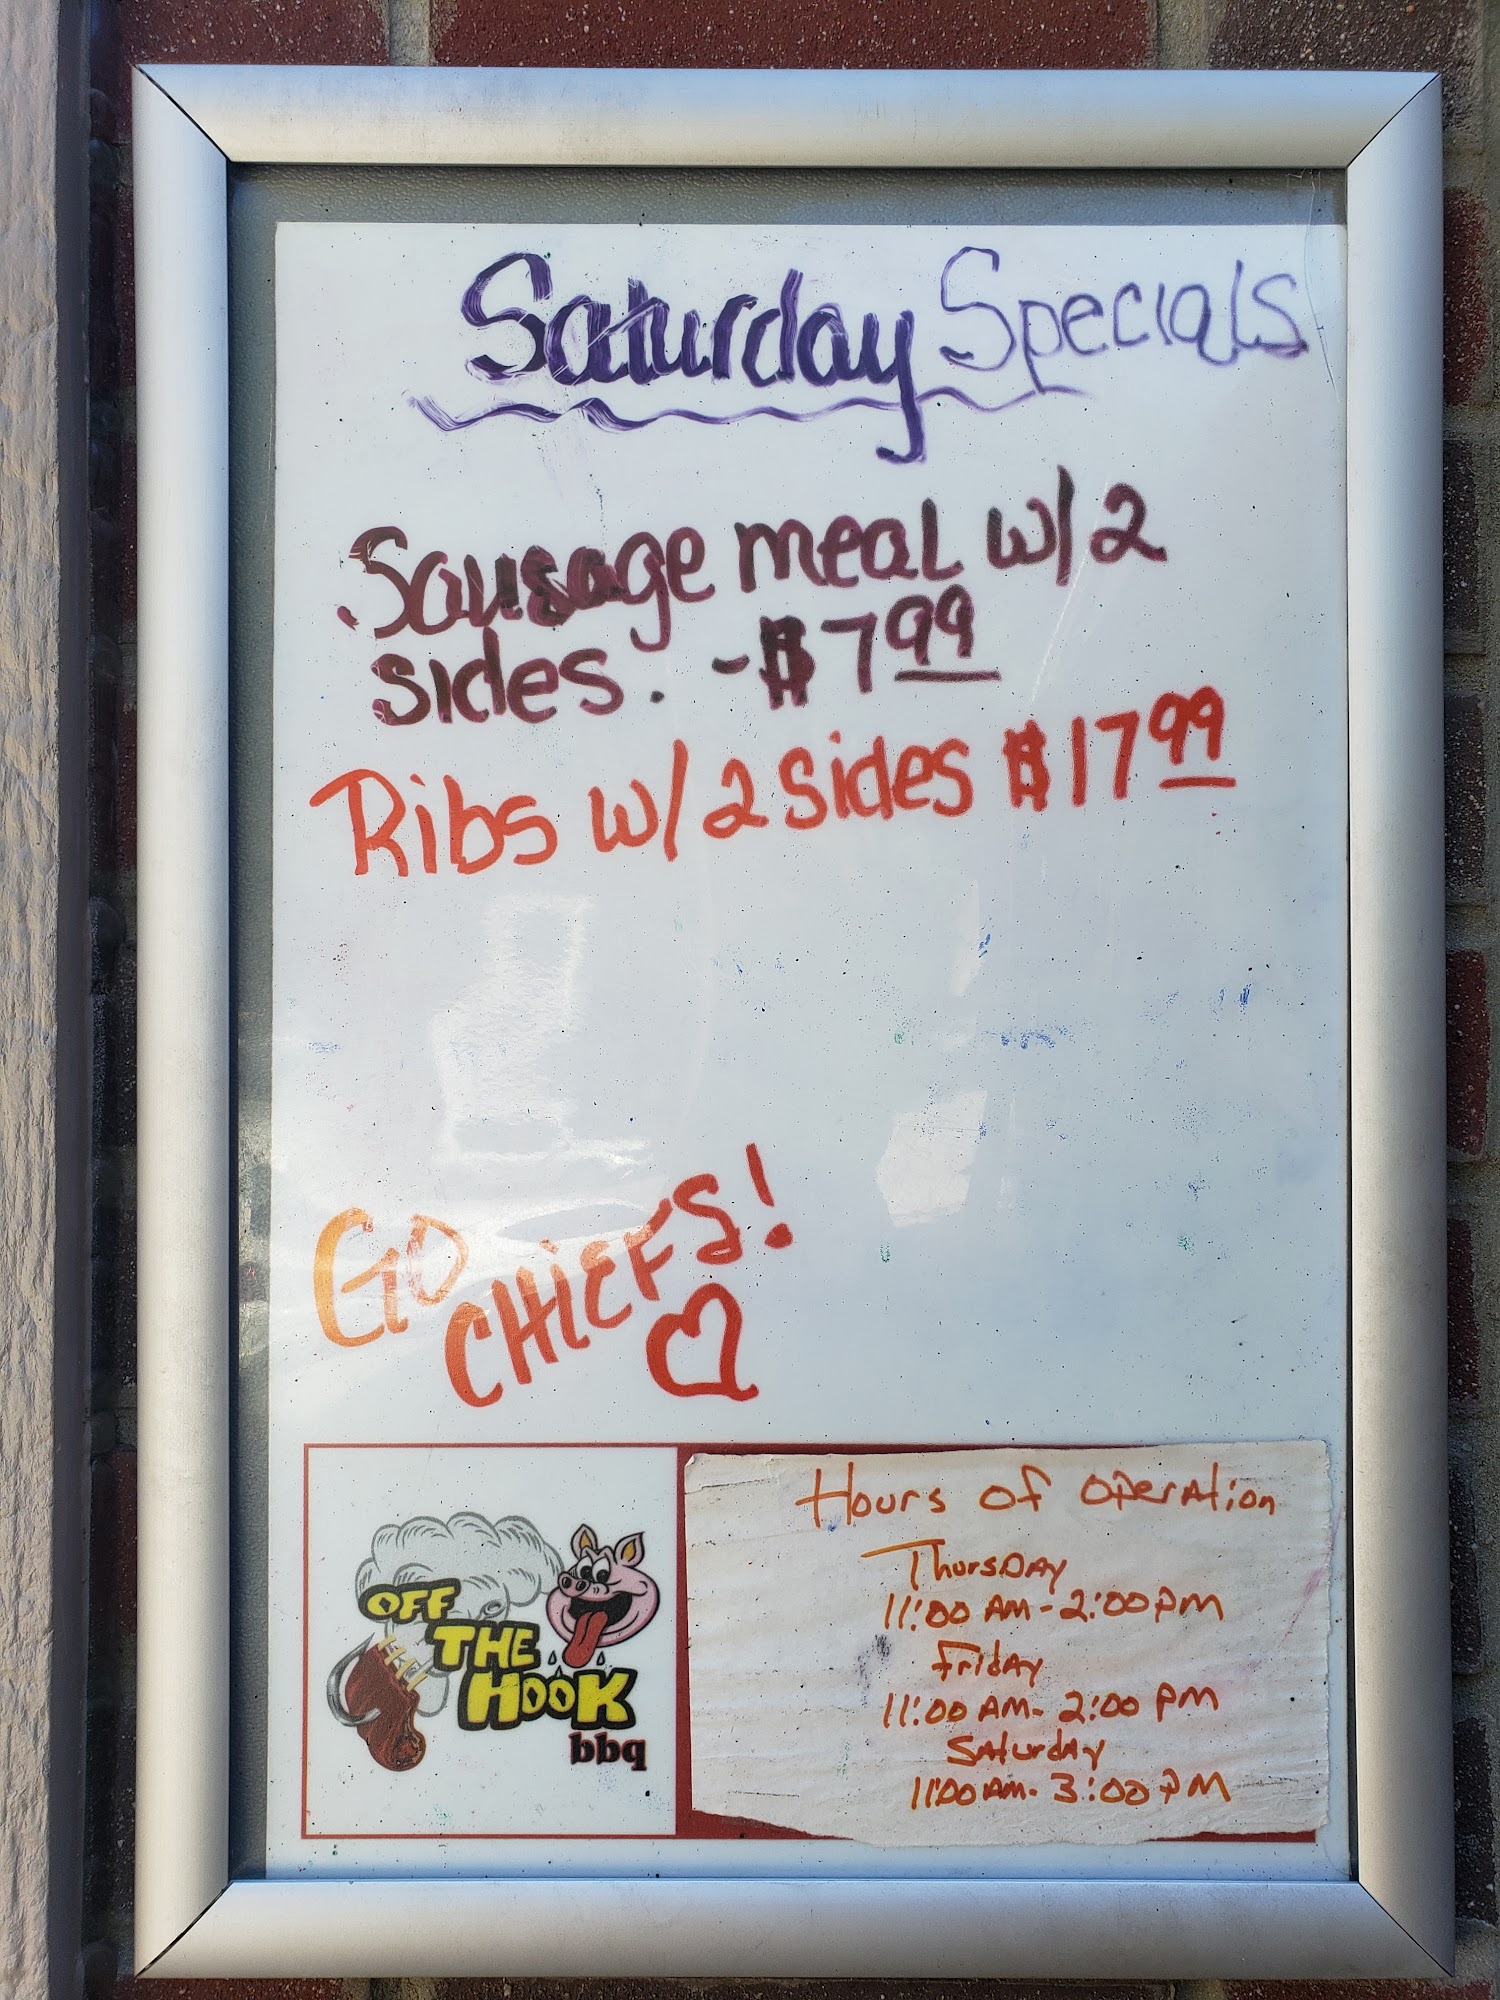 Saturday Specials
Sausage meal w/2
sides. -$7.99
Ribs w/2 sides $17.99
GO
CHIEFS!
OFF
THE
HOOK
bbq
Hours of operation
Thursday
11:00 AM - 2:00 PM
Friday
11:00 AM - 2:00 PM
Saturday
11:00 AM - 3:00 PM